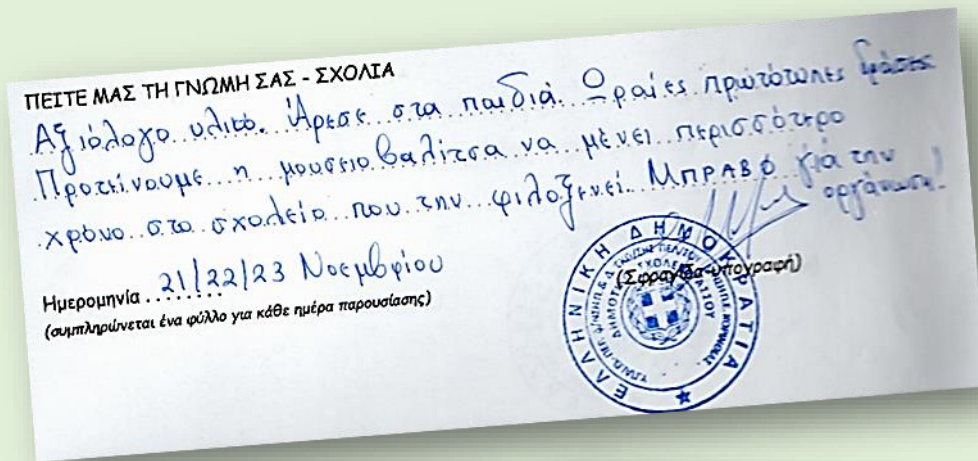 ΠΕΙΤΕ ΜΑΣ ΤΗ ΓΝΩΜΗ ΣΑΣ - ΣΧΟΛΙΑ
Αξιόλογο υλικό. Άρεσε στα παιδιά. Ωραίες πρωτότυπες δράσεις
Προτείνουμε η μουσειοβαλίτσα να μένει περισσότερο
χρόνο στο σχολείο που την φιλοξενεί. ΜΠΡΑΒΟ για την
οργάνωση!
Ημερομηνία ........ 21/22/23 Νοεμβρίου
(Σφραγίδα-υπογραφή)
(συμπληρώνεται ένα φύλλο για κάθε ημέρα παρουσίασης)
ΕΛΛΗΝΙΚΗ ΔΗΜΟΚΡΑΤΙΑ